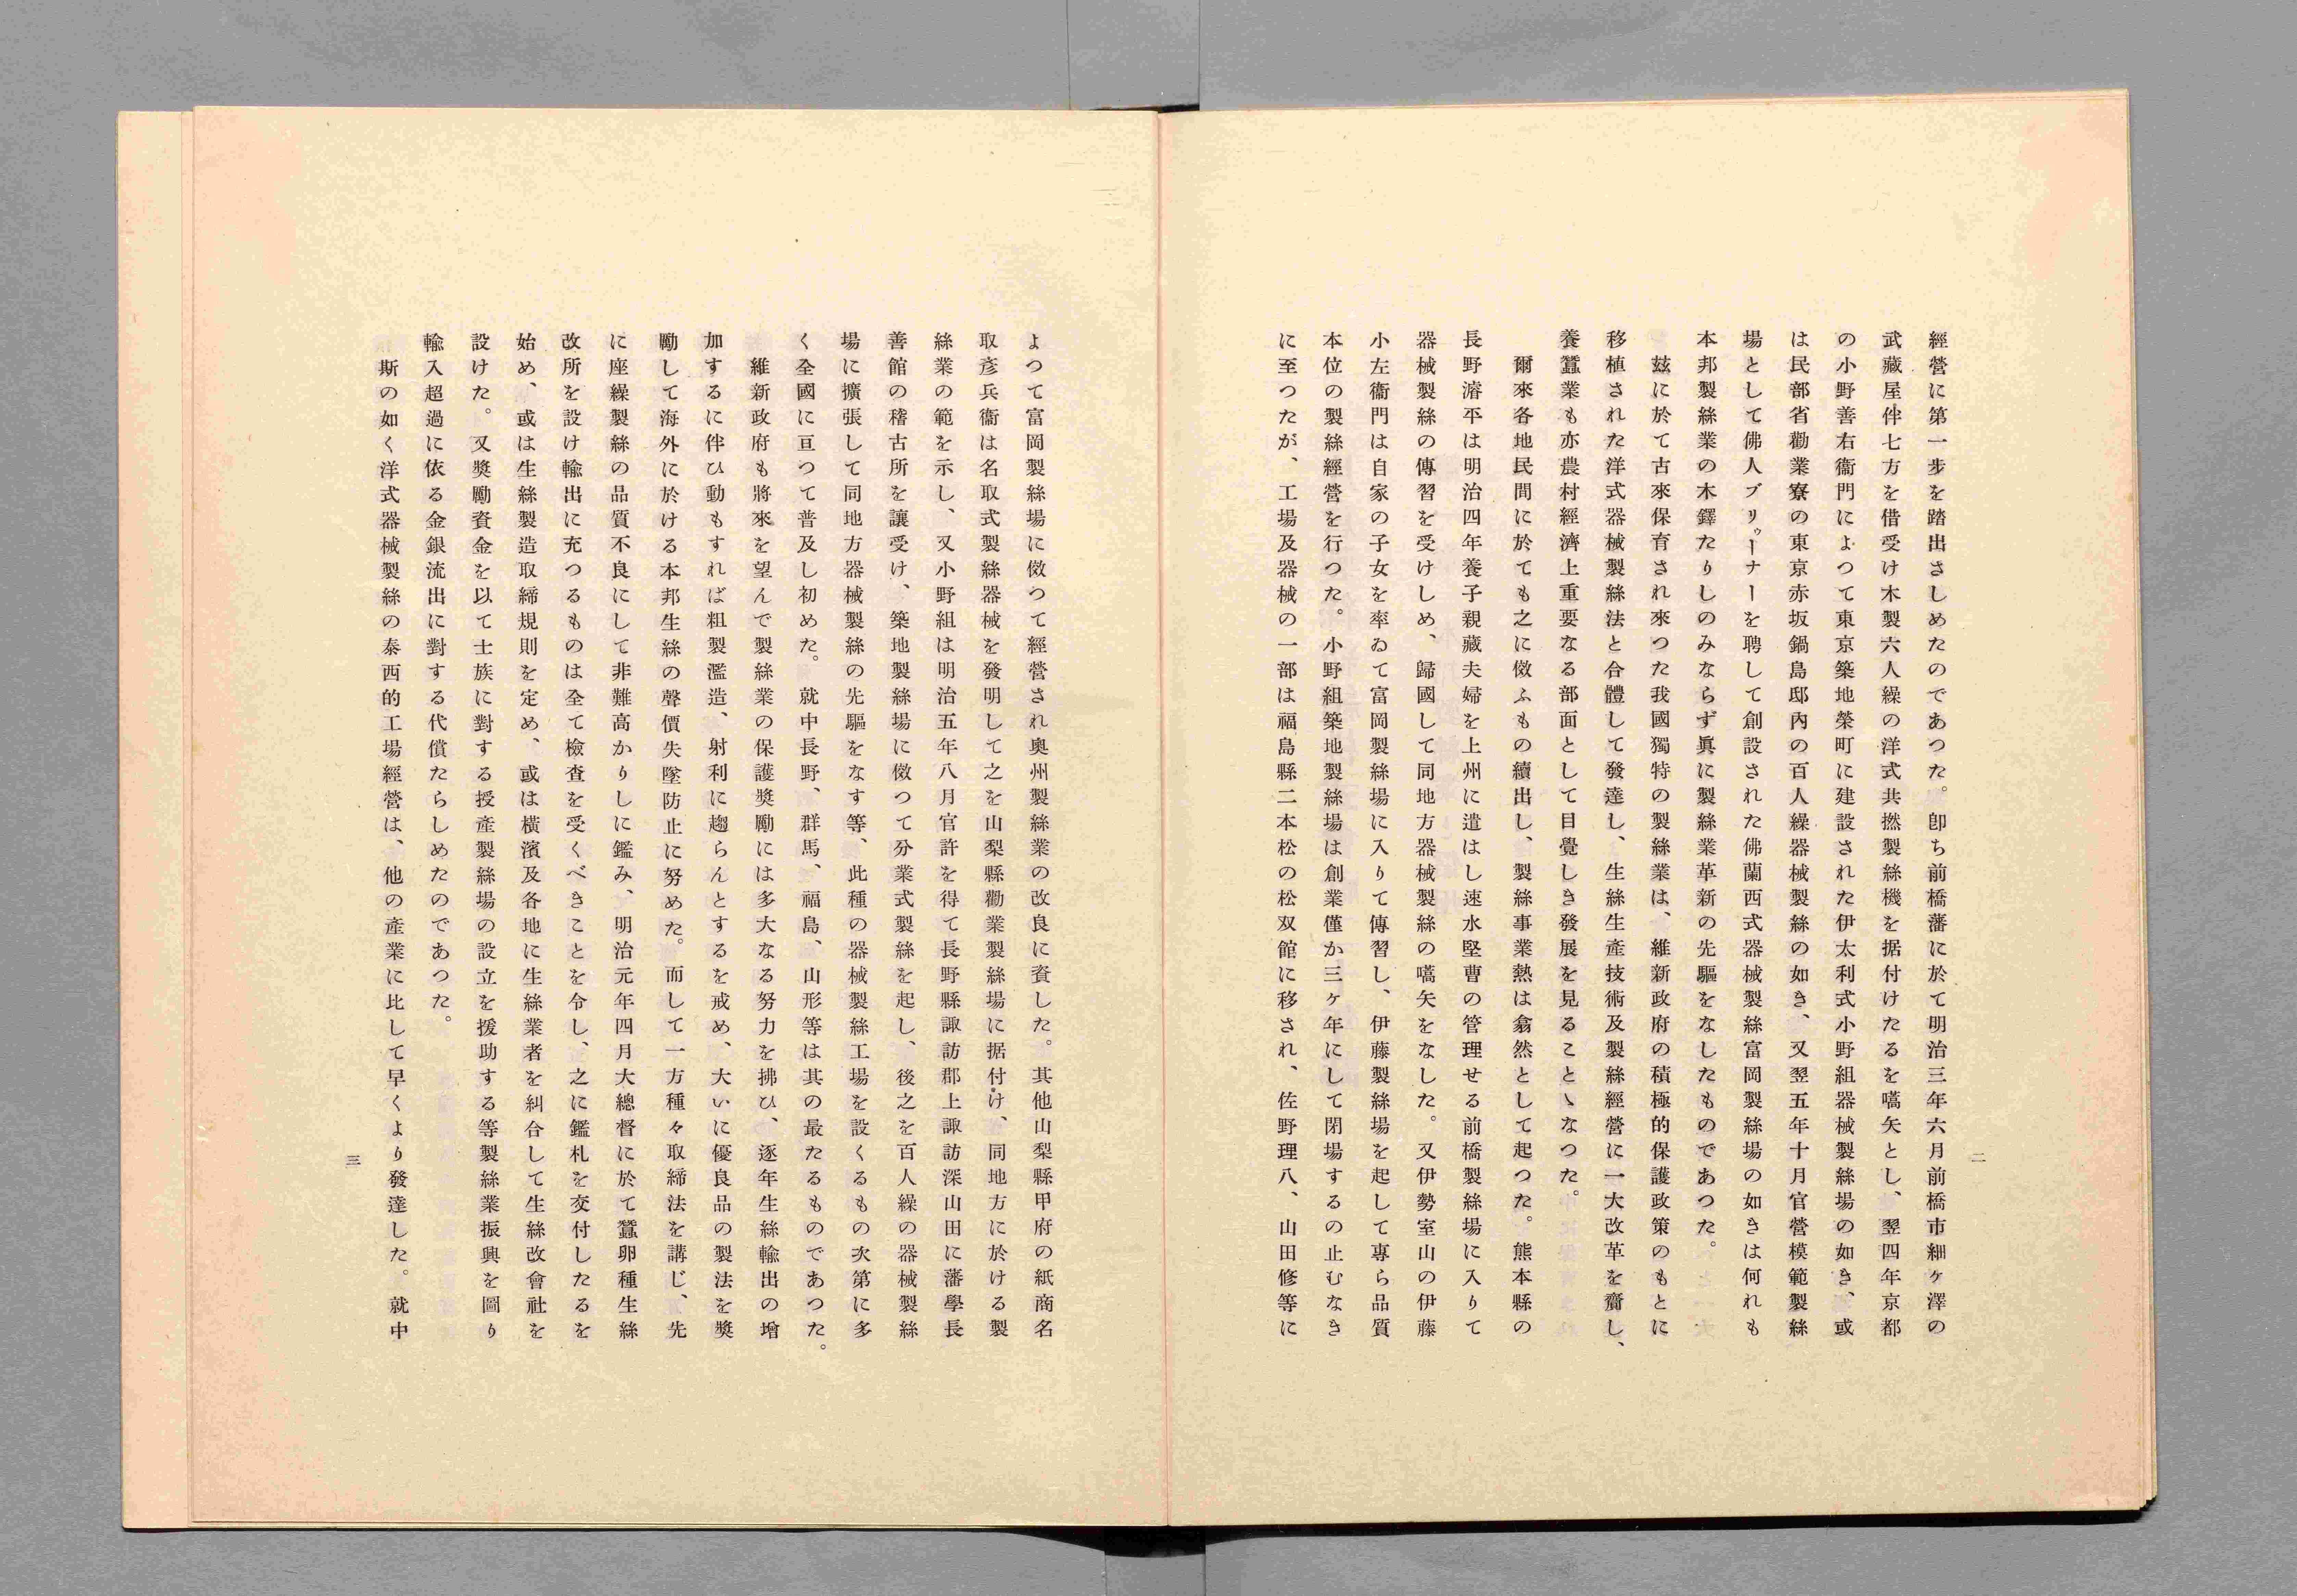 二
經營に第一步を踏出さしめたのであつた。卽ち前橋藩に於て明治三年六月前橋市細ヶ澤の
武藏屋伴七方を借受け木製六人繰の洋式共撚製絲機を据付けたるを嚆矢とし、翌四年京都
の小野善右衞門によつて東京築地榮町に建設された伊太利式小野組器械製絲場の如き、或
は民部省勸業寮の東京赤坂鍋島邸內の百人繰器械製絲の如き、又翌五年十月官營模範製絲
場として佛人ブリゥーナーを聘して創設された佛蘭西式器械製絲富岡製絲場の如きは何れも
本邦製絲業の木鐸たりしのみならず眞に製絲業革新の先驅をなしたものであつた。
玆に於て古來保育され來つた我國獨特の製絲業は、維新政府の積極的保護政策のもとに
移植された洋式器械製絲法と合體して發達し、生絲生產技術及製絲經營に一大改革を齎し、
養蠶業も亦農村經濟上重要なる部面として目覺しき發展を見ることゝなつた。
爾來各地民間に於ても之に倣ふもの續出し、製絲事業熱は翕然として起つた。熊本縣の
長野濬平は明治四年養子親藏夫婦を上州に遣はし速水堅曹の管理せる前橋製絲場に入りて
器械製絲の傳習を受けしめ、歸國して同地方器械製絲の嚆矢をなした。又伊勢室山の伊藤
小左衞門は自家の子女を率ゐて富岡製絲場に入りて傳習し、伊藤製絲場を起して專ら品質
本位の製絲經營を行つた。小野組築地製絲場は創業僅か三ヶ年にして閉場するの止むなき
に至つたが、工場及器械の一部は福島縣二本松の松双館に移され、佐野理八、山田修等に
よつて富岡製絲場に倣つて經營され奧州製絲業の改良に資した。其他山梨縣甲府の紙商名
取彥兵衞は名取式製絲器械を發明して之を山梨縣勸業製絲場に据付け、同地方に於ける製
絲業の範を示し、又小野組は明治五年八月官許を得て長野縣諏訪郡上諏訪深山田に藩學長
善館の稽古所を讓受け、築地製絲場に倣つて分業式製絲を起し、後之を百人繰の器械製絲
場に擴張して同地方器械製絲の先驅をなす等、此種の器械製絲工場を設くるもの次第に多
く全國に亘つて普及し初めた。就中長野、群馬、福島、山形等は其の最たるものであつた。
維新政府も將來を望んで製絲業の保護奬勵には多大なる努力を拂ひ、逐年生絲輸出の增
加するに伴ひ動もすれば粗製濫造、射利に趨らんとするを戒め、大いに優良品の製法を奬
勵して海外に於ける本邦生絲の聲價失墜防止に努めた。而して一方種々取締法を講じ、先
に座繰製絲の品質不良にして非難高かりしに鑑み、明治元年四月大總督に於て蠶卵種生絲
改所を設け輸出に充つるものは全て檢查を受くべきことを令し、之に鑑札を交付したるを
始め、或は生絲製造取締規則を定め、或は橫濱及各地に生絲業者を糾合して生絲改會社を
設けた。又奬勵資金を以て士族に對する授產製絲場の設立を援助する等製絲業振興を圖り
輸入超過に依る金銀流出に對する代償たらしめたのであつた。
斯の如く洋式器械製絲の泰西的工場經營は、他の產業に比して早くより發達した。就中
三